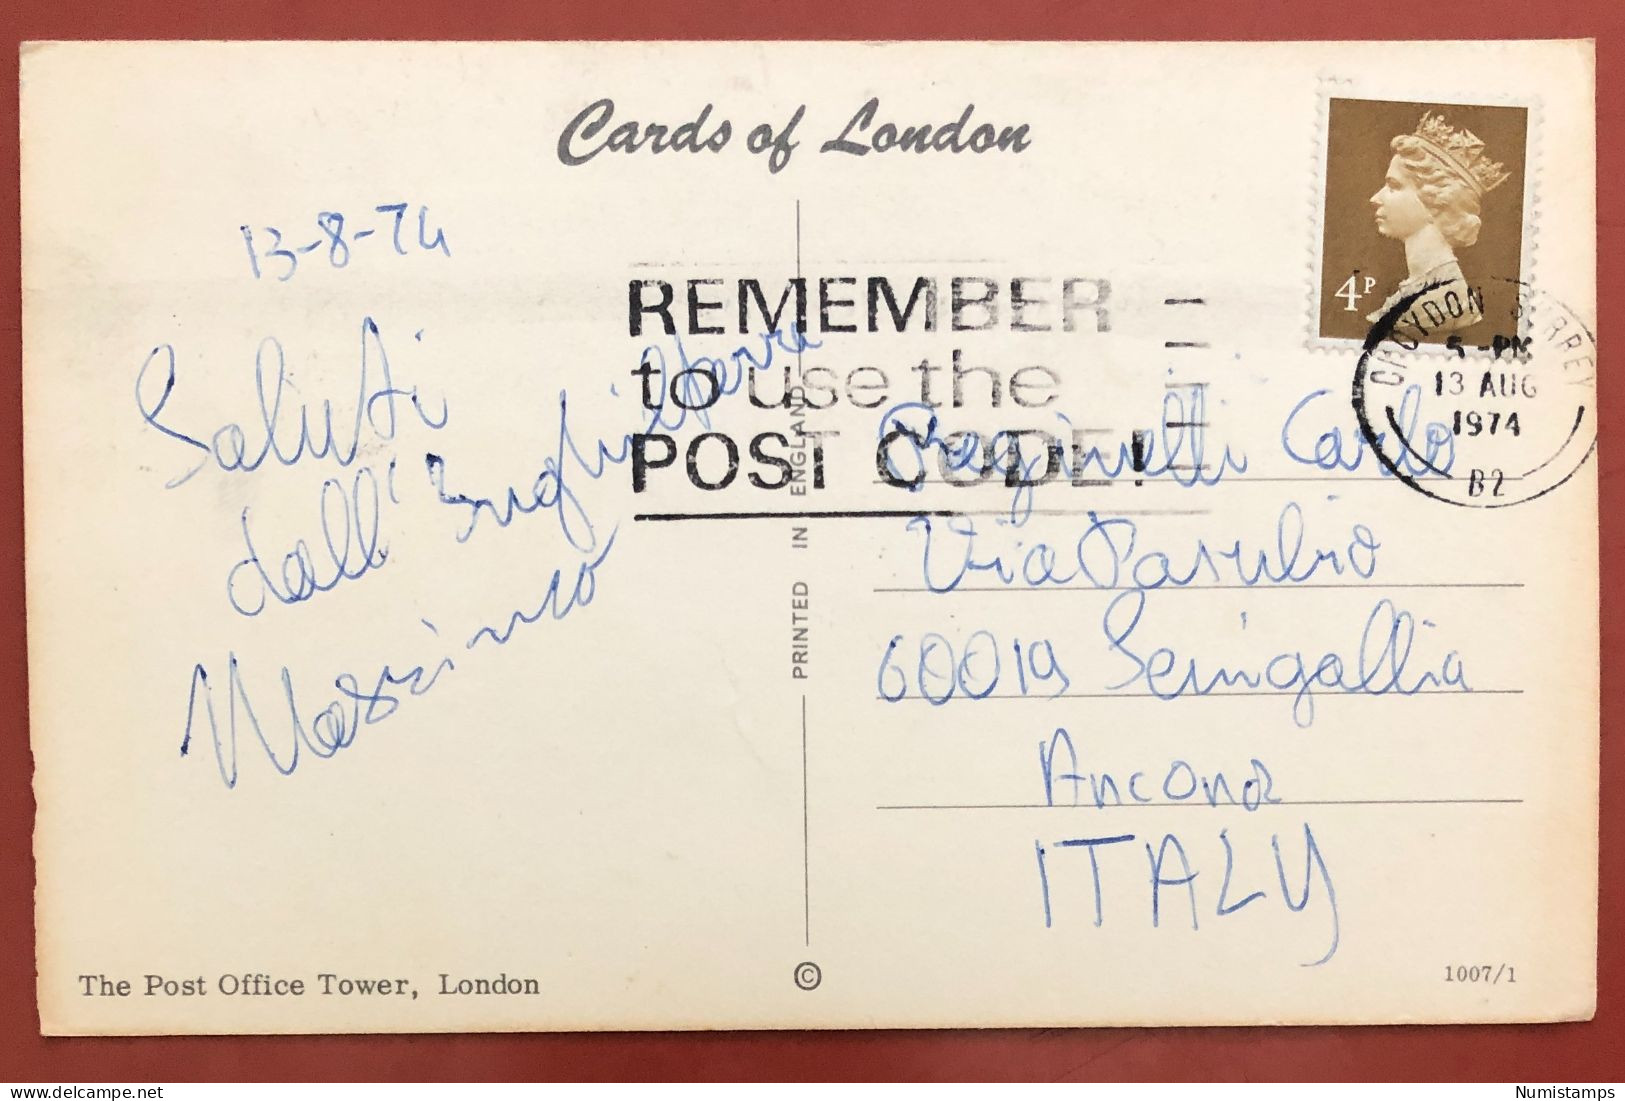 Cards of London
13-8-74
Saluti
dall'Inghilterra
Massimo
REMEMBER
to use the
POST CODE!
4P
CROYDON SURREY
5 - PM
13 AUG
1974
B2
Carlo
Via Pasubio
60019 Senigallia
Ancona
ITALY
PRINTED IN ENGLAND
The Post Office Tower, London
©
1007/1
Numistamps